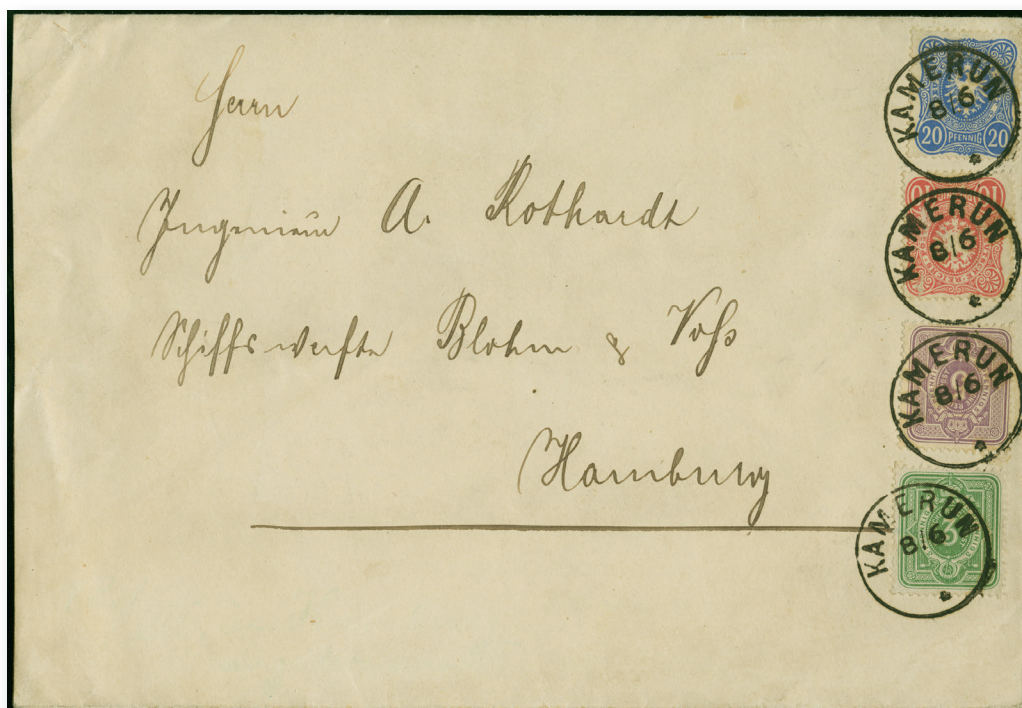 Herrn
Ingenieur A. Rothardt
Schiffswerfte Blohm & Voß
Hamburg
KAMERUN
8/6
20 PFENNIG 20
KAMERUN
8/6
10 10
KAMERUN
8/6
KAMERUN
8/6